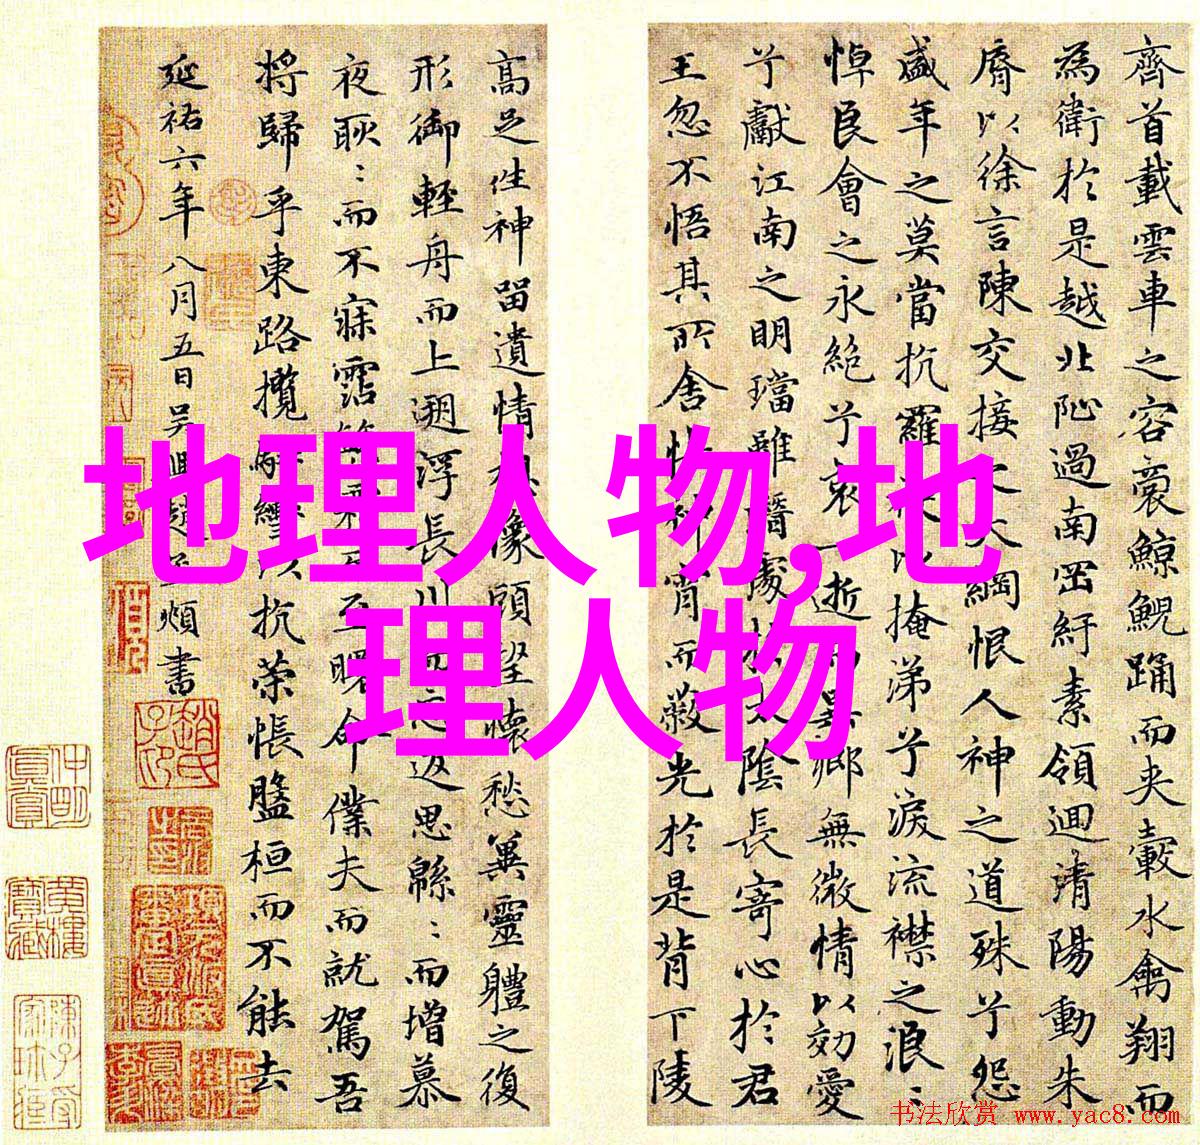 齊首載雲車之容裔鯨鯢踊而夾轂水禽翔而
為衛於是越北沚過南岡紆素領迴清陽動朱
脣以徐言陳交接之大綱恨人神之道殊兮怨
盛年之莫當抗羅袂以掩涕兮淚流襟之浪:
悼良會之永絕兮哀一逝而異鄉無微情以効愛
兮獻江南之明璫雖潛處於太陰長寄心於君
王忽不悟其所舍悵神宵而蔽光於是背下陵
高足往神留遺情想像顧望懷愁冀靈體之復
形御輕舟而上遡浮長川而忘返思緜:而增慕
夜耿:而不寐霑繁霜而至曙命僕夫而就駕吾
將歸乎東路攬騑轡以抗策悵盤桓而不能去
延祐六年八月五日吴興趙孟頫書
地理人物,地
理人物
书法欣赏 www.yac8.com